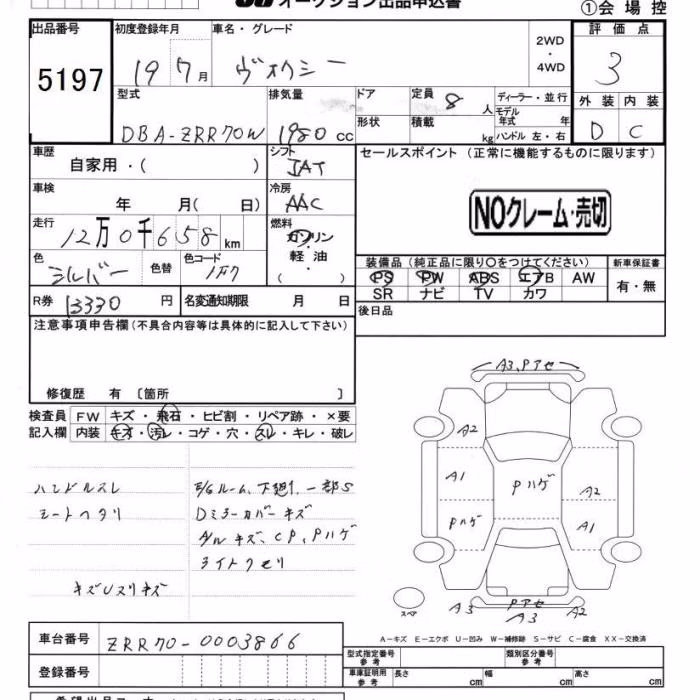 オークション出品申込書
①会場控
出品番号 初度登録年月 車名・グレード 2WD・4WD 評価点
5197 19 7月 ヴォクシー 3
型式 排気量 ドア 定員 8人 ディーラー・並行
外装 内装
形状 積載 kg モデル年式 年
ハンドル 左・右
DBA-ZRR70W 1980 cc D C
車歴 シフト セールスポイント (正常に機能するものに限ります)
自家用・( ) IAT
車検 冷房
年 月( 日) AAC NOクレーム・売切
走行 燃料
12万0千658km ガソリン・軽油・( )
色 色替 色コード 装備品 (純正品に限り○をつけてください) 新車保証書
シルバー 1F7 PS PW ABS エアB AW 有・無
SR ナビ TV カワ
R券 13330 円 名変通知期限 月 日 後日品
注意事項申告欄 (不具合内容等は具体的に記入して下さい)
修復歴 有 〔箇所 〕
検査員 FW キズ・飛石・ヒビ割・リペア跡・×要
記入欄 内装 キズ・汚レ・コゲ・穴・スレ・キレ・破レ
ハンドルスレ E/Gルーム、下廻り、一部S
シートヘタリ Dミラーカバーキズ
A/Wキズ、CP、Pハゲ
ライトクモリ
キズUスリキズ
A3,Pアセ
A2
A1 Pハゲ A2
Pハゲ A1
スペア A3 Pアセ A3 A2
A-キズ E-エクボ U-凹み W-補修跡 S-サビ C-腐食 XX-交換済
車台番号 ZRR70-0003866
型式指定番号 参考 類別区分番号 参考
登録番号
車庫証明用 参考 長さ cm 幅 cm 高さ cm